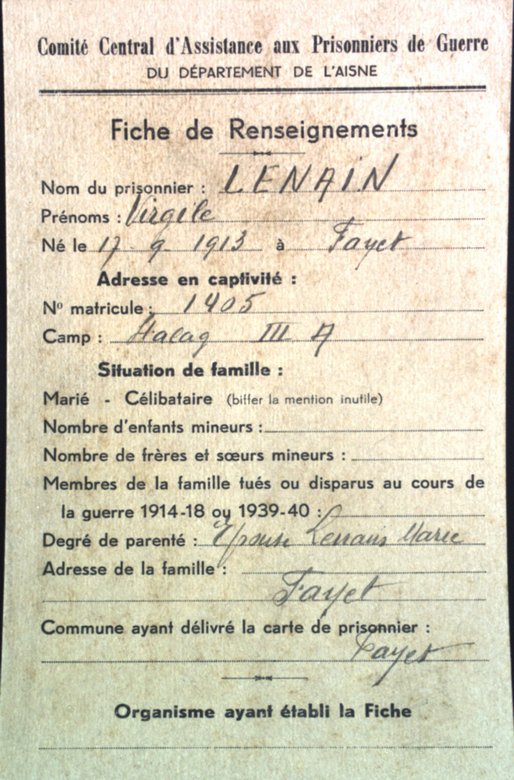 Comité Central d'Assistance aux Prisonniers de Guerre
DU DÉPARTEMENT DE L'AISNE
Fiche de Renseignements
Nom du prisonnier : LENAIN
Prénoms : Virgile
Né le 17 9 1913 à Fayet
Adresse en captivité :
No matricule : 1405
Camp : Stalag III A
Situation de famille :
Marié - Célibataire (biffer la mention inutile)
Nombre d'enfants mineurs :
Nombre de frères et sœurs mineurs :
Membres de la famille tués ou disparus au cours de
la guerre 1914-18 ou 1939-40 :
Degré de parenté : Epouse Lenain Marie
Adresse de la famille :
Fayet
Commune ayant délivré la carte de prisonnier :
Fayet
Organisme ayant établi la Fiche